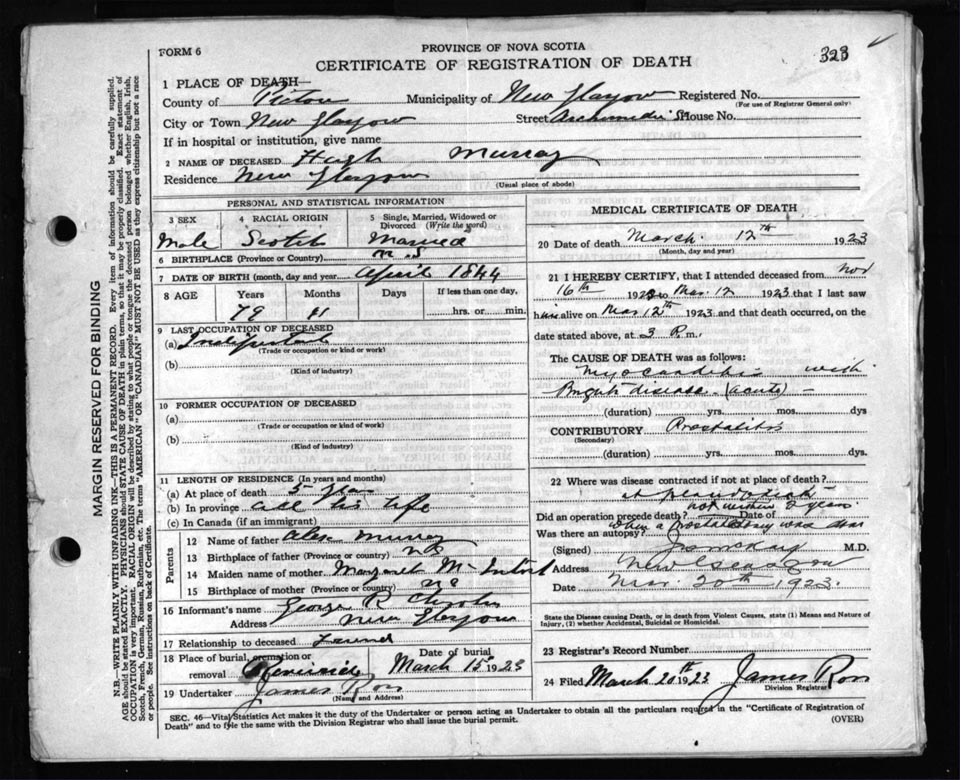 323
FORM 6
PROVINCE OF NOVA SCOTIA
CERTIFICATE OF REGISTRATION OF DEATH
MARGIN RESERVED FOR BINDING
N.B.—WRITE PLAINLY WITH UNFADING INK—THIS IS A PERMANENT RECORD. Every item of information should be carefully supplied.
AGE should be stated EXACTLY. PHYSICIANS should STATE CAUSE OF DEATH in plain terms, so that it may be properly classified. Exact statement of
OCCUPATION is very important. RACIAL ORIGIN will be described by stating to what people or tongue the deceased person belonged whether English, Irish,
Scotch, French, German, Russian, Ruthenian, etc. The terms "AMERICAN" OR "CANADIAN" MUST NOT BE USED as they express citizenship but not a race
or people. See instructions on back of Certificate.
1 PLACE OF DEATH—
County of Pictou Municipality of New Glasgow Registered No.
(For use of Registrar General only)
City or Town New Glasgow Street Archimedes St House No.
If in hospital or institution, give name
2 NAME OF DECEASED Hugh Murray
Residence New Glasgow
(Usual place of abode)
PERSONAL AND STATISTICAL INFORMATION
3 SEX 4 RACIAL ORIGIN 5 Single, Married, Widowed or Divorced (Write the word)
Male Scotch Married
6 BIRTHPLACE (Province or Country) N.S
7 DATE OF BIRTH (month, day and year) April 1844
8 AGE Years Months Days If less than one day,
79 11 hrs. or min.
9 LAST OCCUPATION OF DECEASED
(a)
(Trade or occupation or kind or work)
(b)
(Kind of industry)
10 FORMER OCCUPATION OF DECEASED
(a)
(Trade or occupation or kind or work)
(b)
(Kind of industry)
11 LENGTH OF RESIDENCE (In years and months)
(a) At place of death 5
(b) In province all his life
(c) In Canada (if an immigrant)
Parents
12 Name of father Alex Murray
13 Birthplace of father (Province or country) N S
14 Maiden name of mother Margaret
15 Birthplace of mother (Province or country)
16 Informant's name George R
Address New Glasgow
17 Relationship to deceased Friend
18 Place of burial, cremation or removal Riverside Date of burial March 15 1923
19 Undertaker James Ross
(Name and Address)
MEDICAL CERTIFICATE OF DEATH
20 Date of death March 12th 1923
(Month, day and year)
21 I HEREBY CERTIFY, that I attended deceased from Nov
16th 192 to Mar. 12 1923 that I last saw
him alive on Mar 12th 1923 and that death occurred, on the
date stated above, at 3 P. m.
The CAUSE OF DEATH was as follows:
Myocarditis with
Brights disease (acute)
(duration) yrs. mos. dys
CONTRIBUTORY Prostatitis
(Secondary)
(duration) yrs. mos. dys.
22 Where was disease contracted if not at place of death?
Did an operation precede death? not within 2 years Date of
when a prostatectomy was done
Was there an autopsy?
(Signed) M.D.
Address New Glasgow
Date Mar. 20th 1923.
State the Disease causing Death, or in death from Violent Causes, state (1) Means and Nature of
Injury, (2) whether Accidental, Suicidal or Homicidal.
23 Registrar's Record Number
24 Filed March 20th 1923 James Ross
Division Registrar
SEC. 46—Vital Statistics Act makes it the duty of the Undertaker or person acting as Undertaker to obtain all the particulars required in the "Certificate of Registration of
Death" and to file the same with the Division Registrar who shall issue the burial permit.
(OVER)